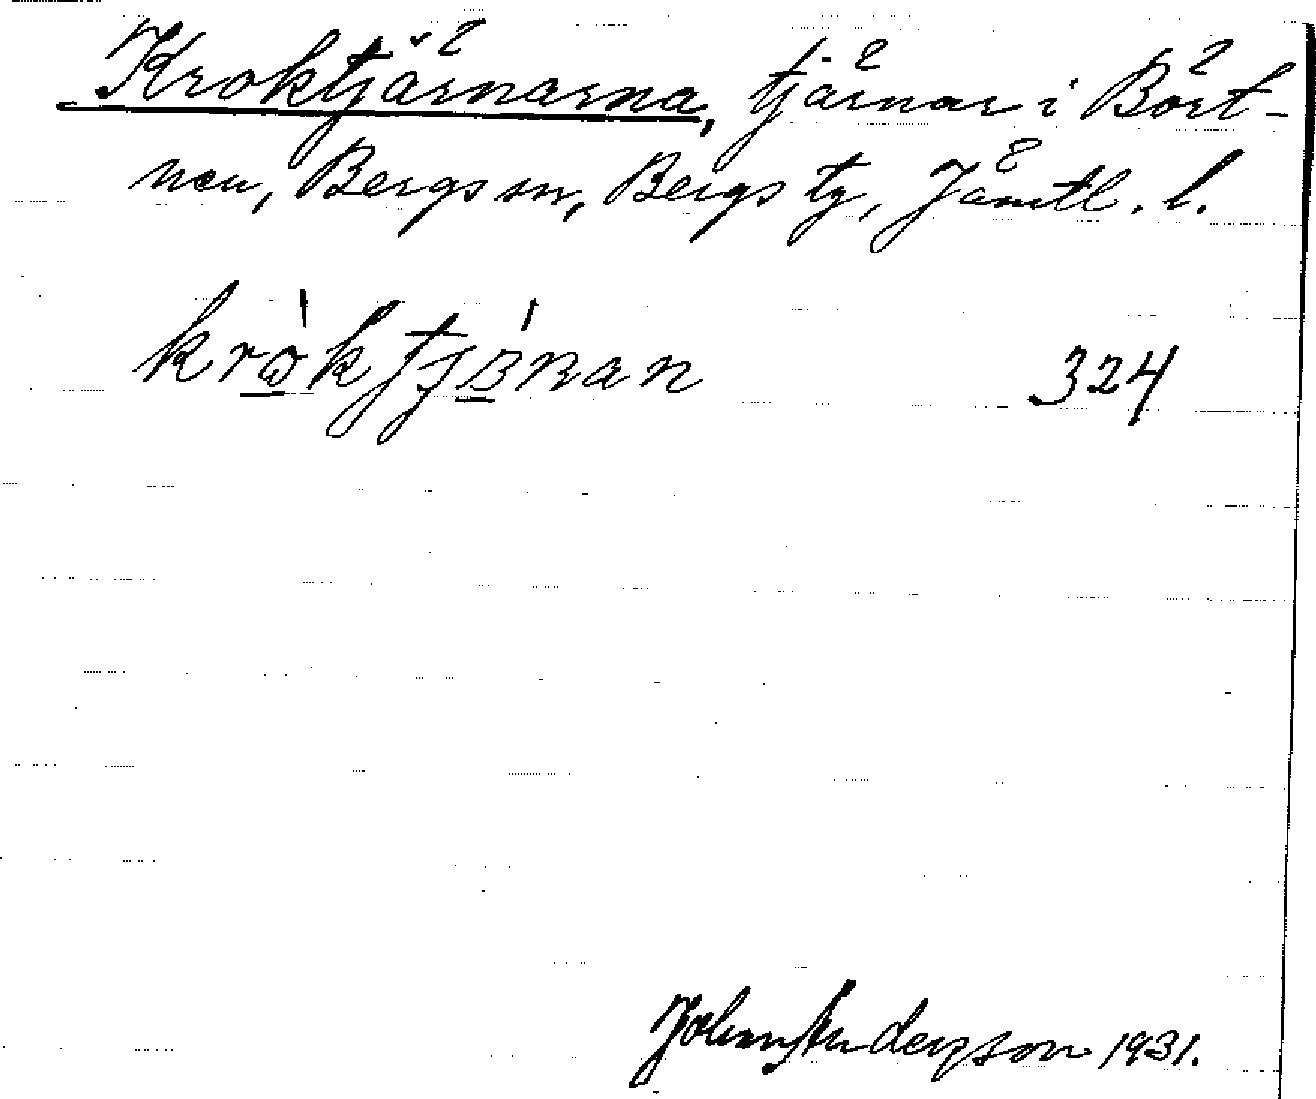 Kroktjärnarna, tjärnar i Bört-
nen, Bergs sn, Bergs tg, Jämtl. l.
324
John Anderson 1931.